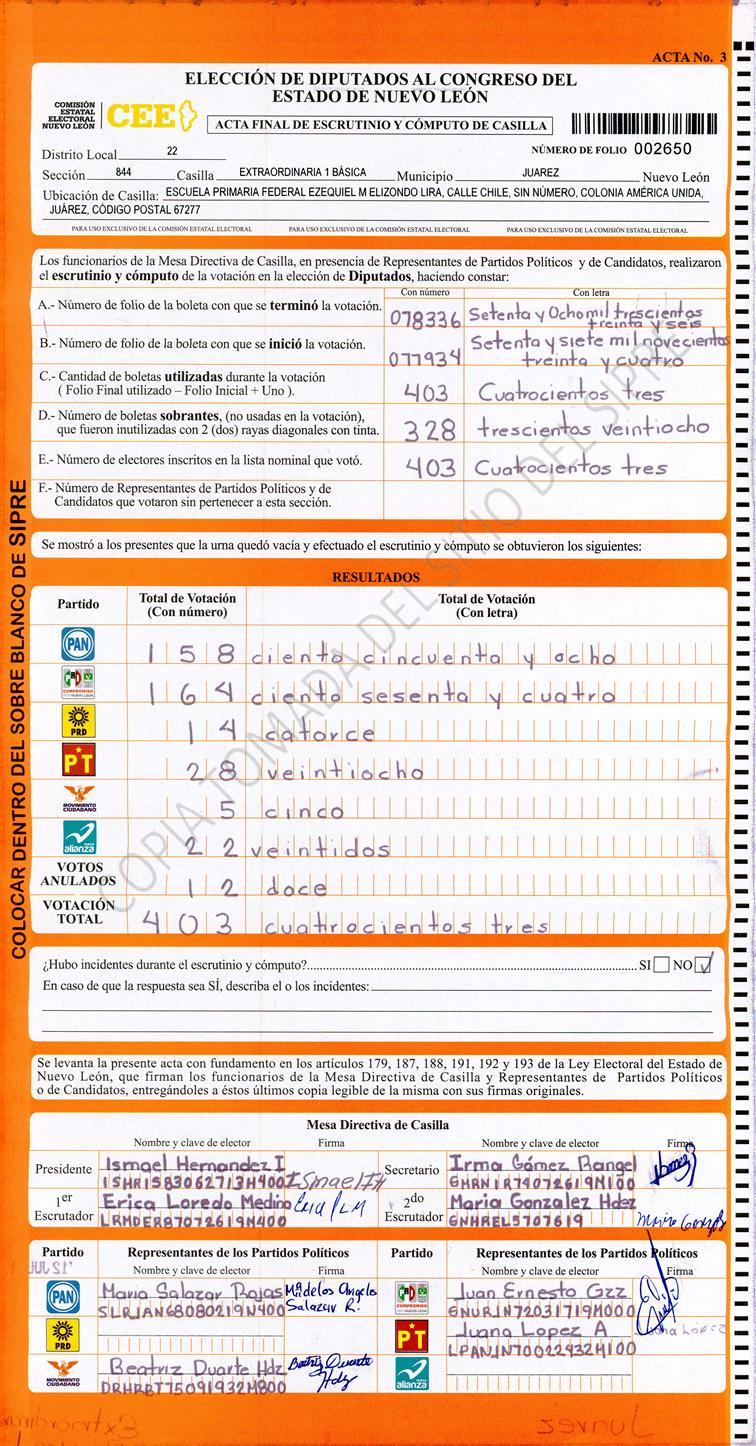 ACTA No. 3
ELECCIÓN DE DIPUTADOS AL CONGRESO DEL
ESTADO DE NUEVO LEÓN
COMISIÓN
ESTATAL
ELECTORAL
NUEVO LEÓN
CEE
ACTA FINAL DE ESCRUTINIO Y CÓMPUTO DE CASILLA
Distrito Local 22
NÚMERO DE FOLIO 002650
Sección 844 Casilla EXTRAORDINARIA 1 BÁSICA Municipio JUAREZ Nuevo León
Ubicación de Casilla: ESCUELA PRIMARIA FEDERAL EZEQUIEL M ELIZONDO LIRA, CALLE CHILE, SIN NÚMERO, COLONIA AMÉRICA UNIDA,
JUÁREZ, CÓDIGO POSTAL 67277
PARA USO EXCLUSIVO DE LA COMISIÓN ESTATAL ELECTORAL PARA USO EXCLUSIVO DE LA COMISIÓN ESTATAL ELECTORAL PARA USO EXCLUSIVO DE LA COMISIÓN ESTATAL ELECTORAL
Los funcionarios de la Mesa Directiva de Casilla, en presencia de Representantes de Partidos Políticos y de Candidatos, realizaron
el escrutinio y cómputo de la votación en la elección de Diputados, haciendo constar:
Con número Con letra
A.- Número de folio de la boleta con que se terminó la votación. 078336 Setenta y Ocho mil trescientos
treinta y seis
B.- Número de folio de la boleta con que se inició la votación. 077934 Setenta y siete mil novecientos
treinta y cuatro
C.- Cantidad de boletas utilizadas durante la votación
( Folio Final utilizado – Folio Inicial + Uno ). 403 Cuatrocientos tres
D.- Número de boletas sobrantes, (no usadas en la votación),
que fueron inutilizadas con 2 (dos) rayas diagonales con tinta. 328 trescientos veintiocho
E.- Número de electores inscritos en la lista nominal que votó. 403 Cuatrocientos tres
F.- Número de Representantes de Partidos Políticos y de
Candidatos que votaron sin pertenecer a esta sección.
Se mostró a los presentes que la urna quedó vacía y efectuado el escrutinio y cómputo se obtuvieron los siguientes:
RESULTADOS
Partido Total de Votación Total de Votación
(Con número) (Con letra)
PAN 158 ciento cincuenta y ocho
COMPROMISO 164 ciento sesenta y cuatro
PRD 14 catorce
PT 28 veintiocho
MOVIMIENTO CIUDADANO 5 cinco
nueva alianza 22 veintidos
VOTOS
ANULADOS 12 doce
VOTACIÓN
TOTAL 403 cuatrocientos tres
¿Hubo incidentes durante el escrutinio y cómputo? SI NO ✓
En caso de que la respuesta sea SÍ, describa el o los incidentes:
Se levanta la presente acta con fundamento en los artículos 179, 187, 188, 191, 192 y 193 de la Ley Electoral del Estado de
Nuevo León, que firman los funcionarios de la Mesa Directiva de Casilla y Representantes de Partidos Políticos
o de Candidatos, entregándoles a éstos últimos copia legible de la misma con sus firmas originales.
Mesa Directiva de Casilla
Nombre y clave de elector Firma Nombre y clave de elector Firma
Presidente Ismael Hernandez I Secretario Irma Gómez Rangel
ISHRIS83062713H400 Ismael I H GMRNIR74072619M100
1er Escrutador Erica Loredo Medino 2do Escrutador Maria Gonzalez Hdez
LRMDER87072619M400 Erica L M GNHREL5707619
Partido Representantes de los Partidos Políticos Partido Representantes de los Partidos Políticos
Nombre y clave de elector Firma Nombre y clave de elector Firma
PAN Maria Salazar Rojas Ma de los Angeles
SLRJAN68080219N400 Salazar R.
COMPROMISO Juan Ernesto Gzz
GNURJN72031719M000
PRD
PT Juana Lopez A
LPANJN70022932M100
MOVIMIENTO CIUDADANO Beatriz Duarte Hdz Beatriz Duarte
DRHRBT75091932M800 Hdz
nueva alianza
COLOCAR DENTRO DEL SOBRE BLANCO DE SIPRE
COPIA TOMADA DEL SITIO DEL SIPRE
Juarez